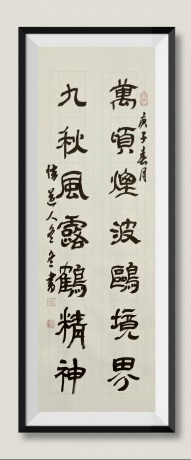 萬頃煙波鷗境界
庚子春月
九秋風露鶴精神